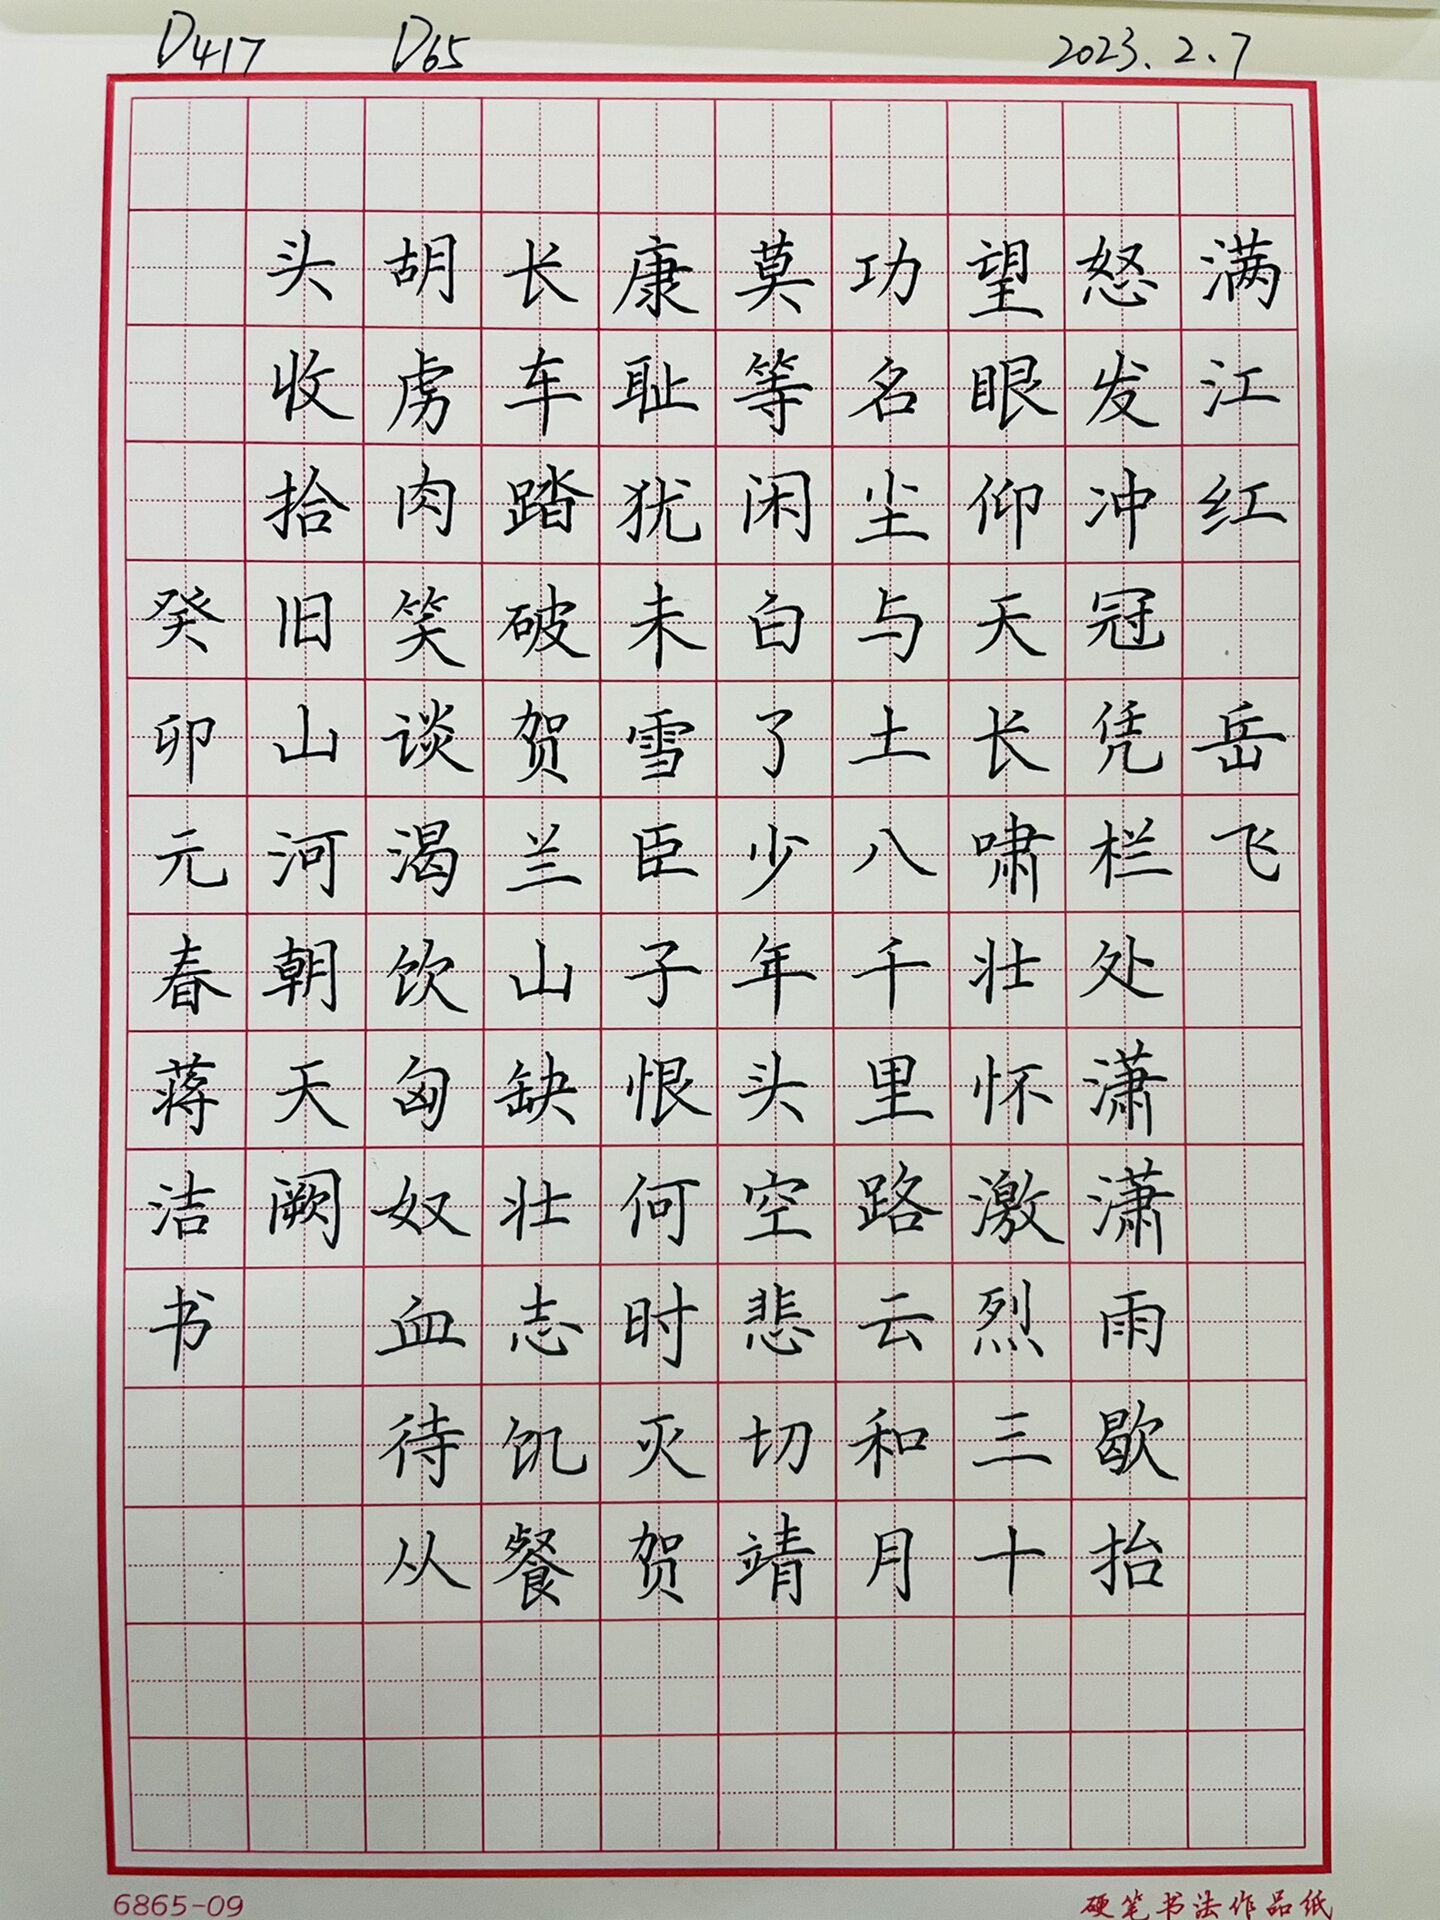 D417 D65 2023.2.7
满江红 岳飞
怒发冲冠凭栏处潇潇雨歇抬
望眼仰天长啸壮怀激烈三十
功名尘与土八千里路云和月
莫等闲白了少年头空悲切靖
康耻犹未雪臣子恨何时灭贺
长车踏破贺兰山缺壮志饥餐
胡虏肉笑谈渴饮匈奴血待从
头收拾旧山河朝天阙
癸卯元春蒋洁书
6865-09 硬笔书法作品纸